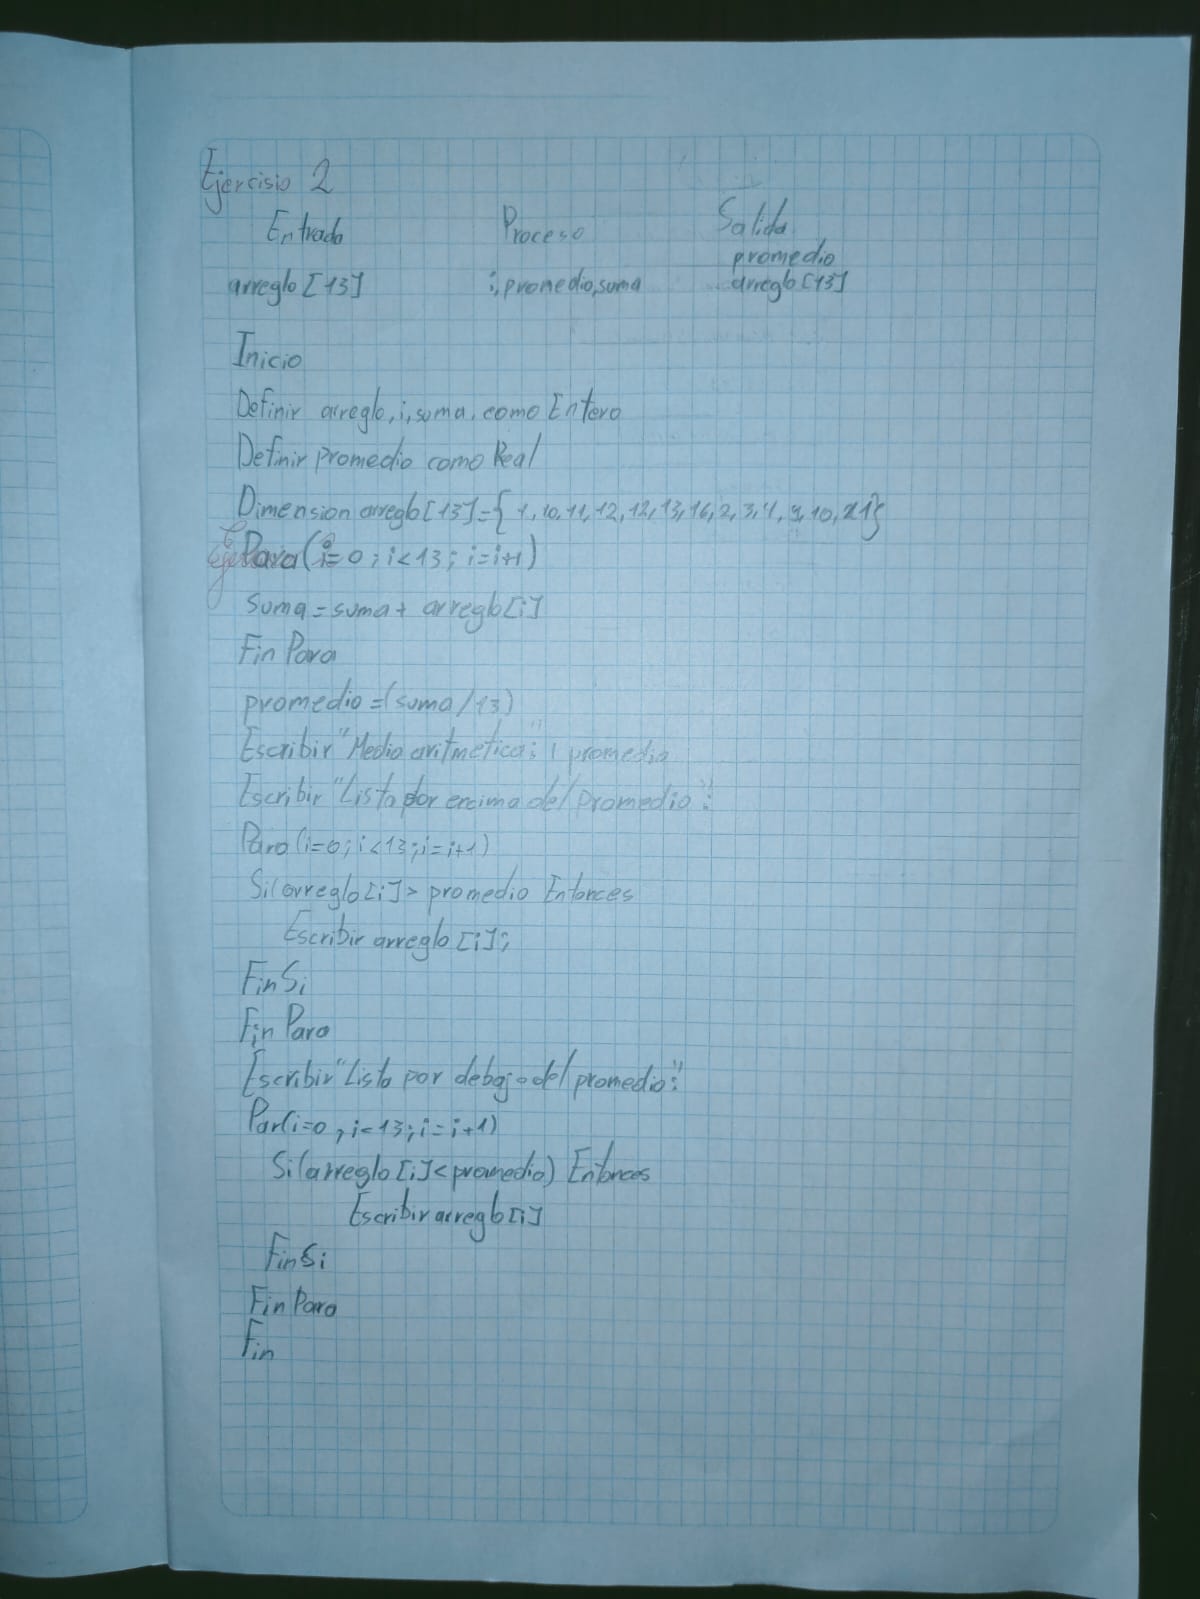 Ejercisio 2
Entrada Proceso Salida
promedio
arreglo[13] i, promedio, suma arreglo[13]
Inicio
Definir arreglo, i, suma, como Entero
Definir promedio como Real
Dimension arreglo[13]={1, 10, 11, 12, 12, 13, 16, 2, 3, 4, 9, 10, 21}
Para(i=0; i<13; i=i+1)
suma=suma+ arreglo[i]
Fin Para
promedio=(suma/13)
Escribir "Media aritmetica:", promedio
Escribir "Lista por encima del promedio:"
Para(i=0; i<13; i=i+1)
Si(arreglo[i]> promedio Entonces
Escribir arreglo[i];
FinSi
Fin Para
Escribir "Lista por debajo del promedio:"
Par(i=0, i<13; i=i+1)
Si(arreglo[i]<promedio) Entonces
Escribir arreglo[i]
FinSi
Fin Para
Fin